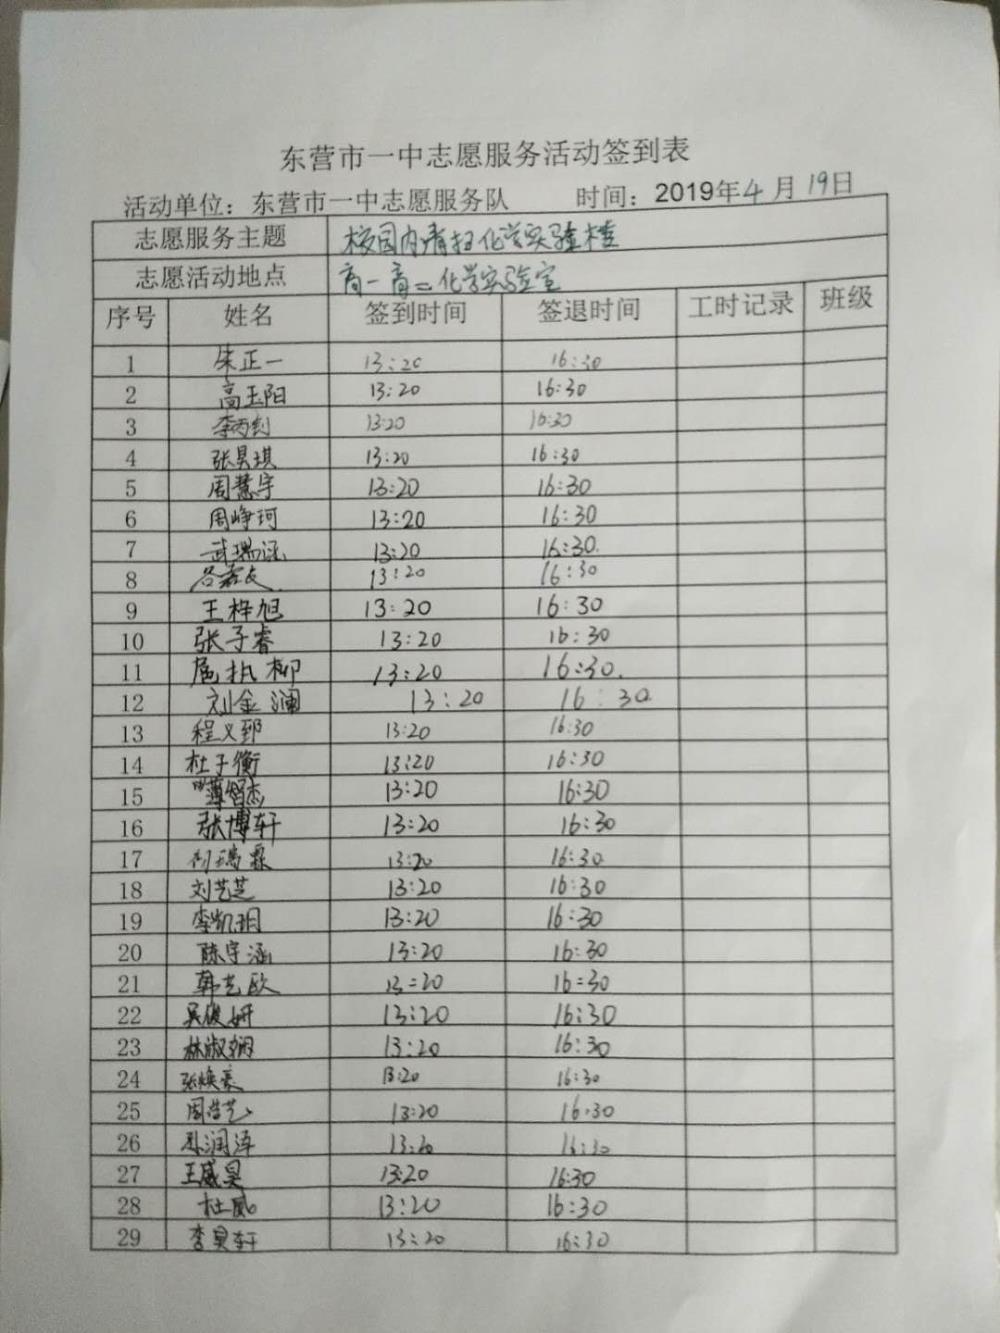 东营市一中志愿服务活动签到表
活动单位：东营市一中志愿服务队 时间：2019年4月19日
志愿服务主题 校园内清扫化学实验楼
志愿活动地点 高一高二化学实验室
序号 姓名 签到时间 签退时间 工时记录 班级
1 朱正一 13:20 16:30
2 高玉阳 13:20 16:30
3 李丙钊 13:20 16:30
4 张昊琪 13:20 16:30
5 周慧宇 13:20 16:30
6 周峥珂 13:20 16:30
7 武瑞涵 13:20 16:30.
8 13:20 16:30
9 王梓旭 13:20 16:30
10 张子睿 13:20 16:30
11 13:20 16:30.
12 刘金澜 13:20 16:30
13 程义郅 13:20 16:30
14 杜子衡 13:20 16:30
15 薄智杰 13:20 16:30
16 张博轩 13:20 16:30
17 13:20 16:30
18 刘艺芝 13:20 16:30
19 李凯玥 13:20 16:30
20 陈宇涵 13:20 16:30
21 韩艺欧 13:20 16:30
22 吴俊妍 13:20 16:30
23 林淑娴 13:20 16:30
24 张焕豪 13:20 16:30
25 周浩艺 13:20 16:30
26 孙润泽 13:20 16:30
27 王威昊 13:20 16:30
28 杜威 13:20 16:30
29 李昊轩 13:20 16:30